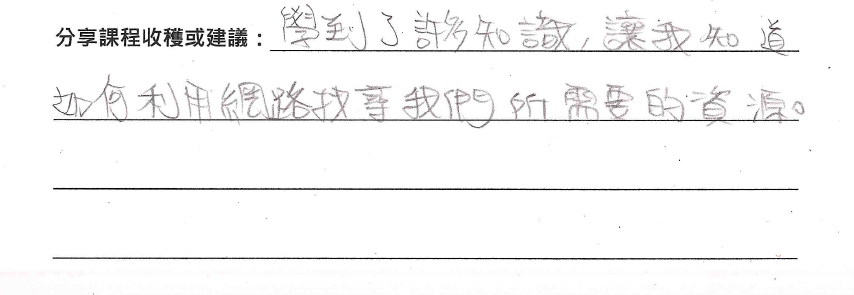 分享課程收穫或建議：學到了許多知識，讓我知道
如何利用網路找尋我們所需要的資源。